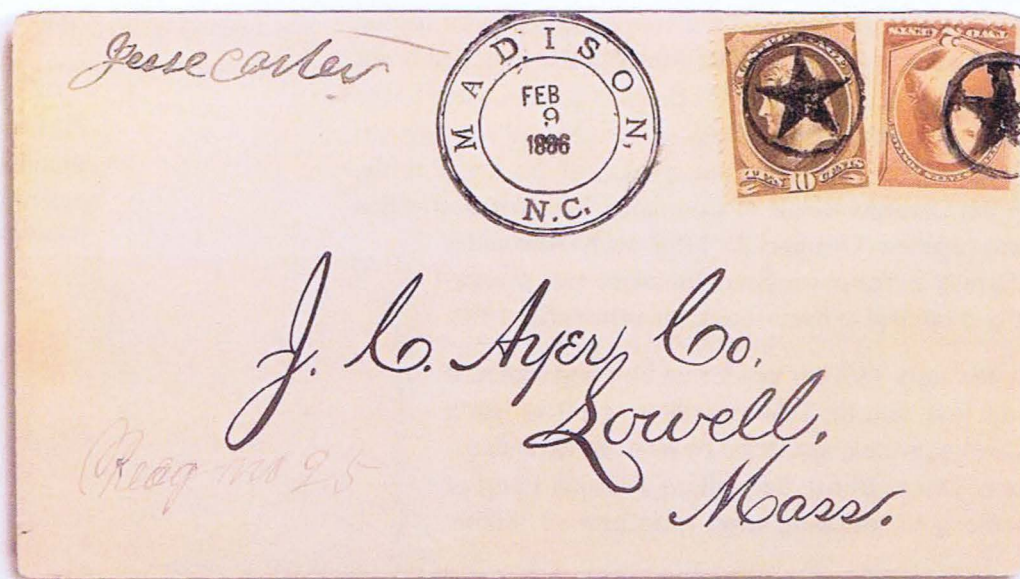 Jesse Carter
MADISON,
FEB
9
1886
N.C.
10 CENTS
J. C. Ayer Co.
Lowell.
Mass.
No 25